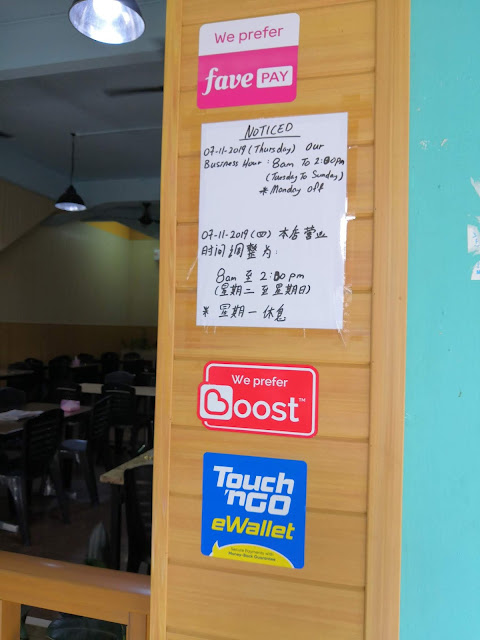 We prefer
fave PAY
NOTICED
07-11-2019 (Thursday) Our
Business Hour : 8am To 2:00pm
(Tuesday To Sunday)
* Monday off
07-11-2019 (四) 本店营业
时间调整为:
8am 至 2:00pm
(星期二至星期日)
* 星期一休息
We prefer
Boost™
Touch
'nGO
eWallet
Secure Payments with
Money-Back Guarantee